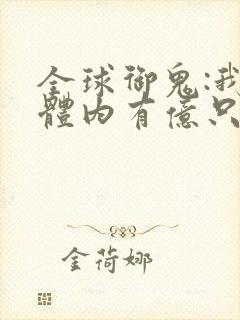 全球御鬼:我
體內有億只
金荷娜